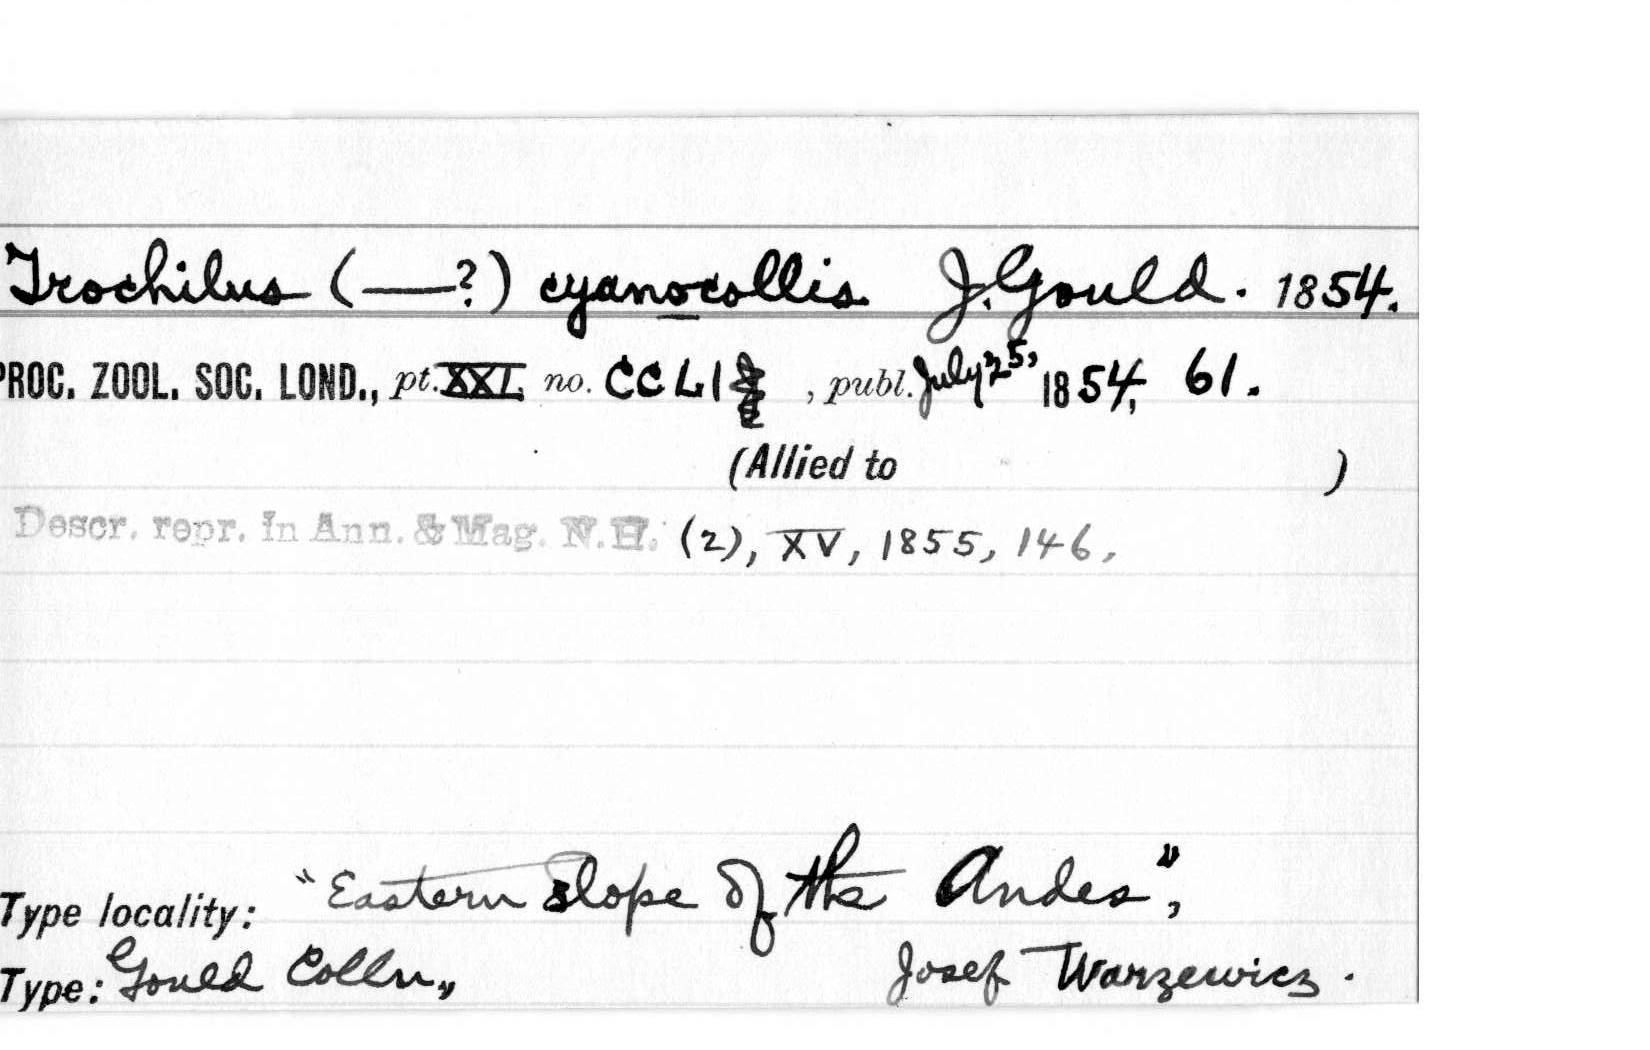 Trochilus (—?) cyanocollis J. Gould. 1854.
PROC. ZOOL. SOC. LOND., pt. XXI. no. CCLI , publ. July 25, 1854, 61.
(Allied to )
Descr. repr. in Ann. & Mag. N.H. (2), XV, 1855, 146.
Type locality: "Eastern slope of the Andes",
Type: Gould Colln., Josef Warzewicz.